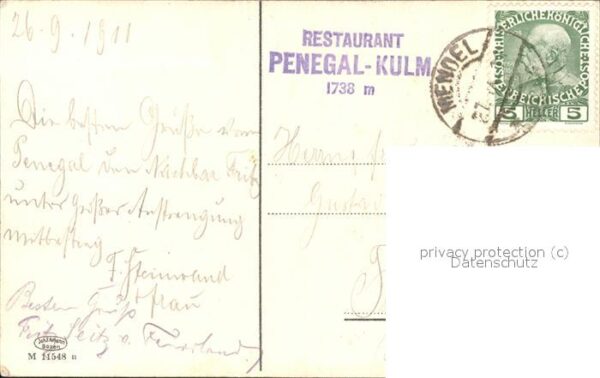 26.9.1911
RESTAURANT
PENEGAL-KULM
1738 m
MENDEL
KAISERLICHE KÖNIGLICHE ÖSTERREICHISCHE POST
5 HELLER 5
Die besten Grüße vom
Penegal von Nachbar Fritz
unter Großer Anstrengung
mitbestieg
F. Steinwand
Frau
Besten Gruß
Fritz Seitz v.
Herrn
Gustav
privacy protection (c)
Datenschutz
Bozen
M 11548 n